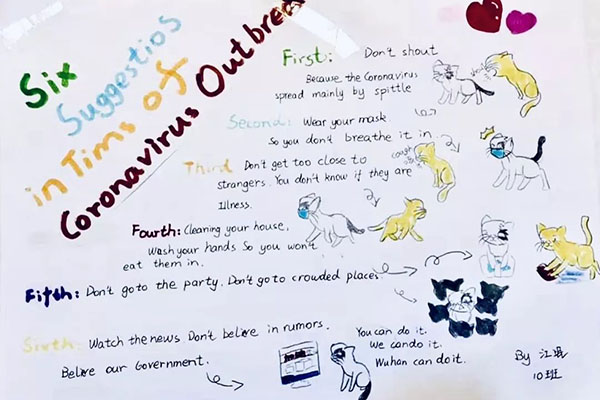 Six
Suggestios
in Tims of
Coronavirus Outbrea
First: Don't shout
Because the Coronavirus
spread mainly by spittle
Second: Wear your mask
So you don't breathe it in.
Third Don't get too close to
strangers. You don't know if they are
Illness.
cough
Fourth: Cleaning your house.
Wash your hands So you won't
eat them in.
Fifth: Don't go to the party. Don't go to crowded places
Sixth: Watch the news Don't belive in rumors.
Belive our Government.
You can do it.
We can do it.
Wuhan can do it.
By 江
10班